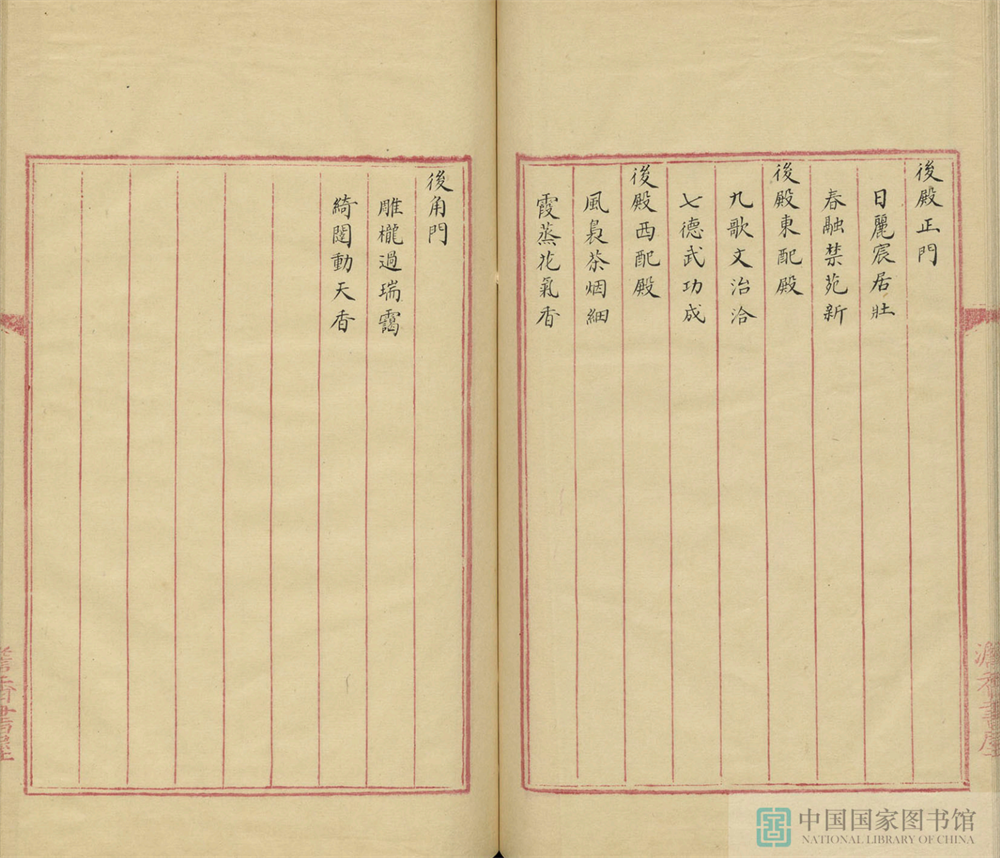 後殿正門
日麗宸居壯
春融禁苑新
後殿東配殿
九歌文治洽
七德武功成
後殿西配殿
風裊茶烟細
霞蒸花氣香
後角門
雕櫳過瑞靄
綺閣動天香
中国国家图书馆
NATIONAL LIBRARY OF CHINA